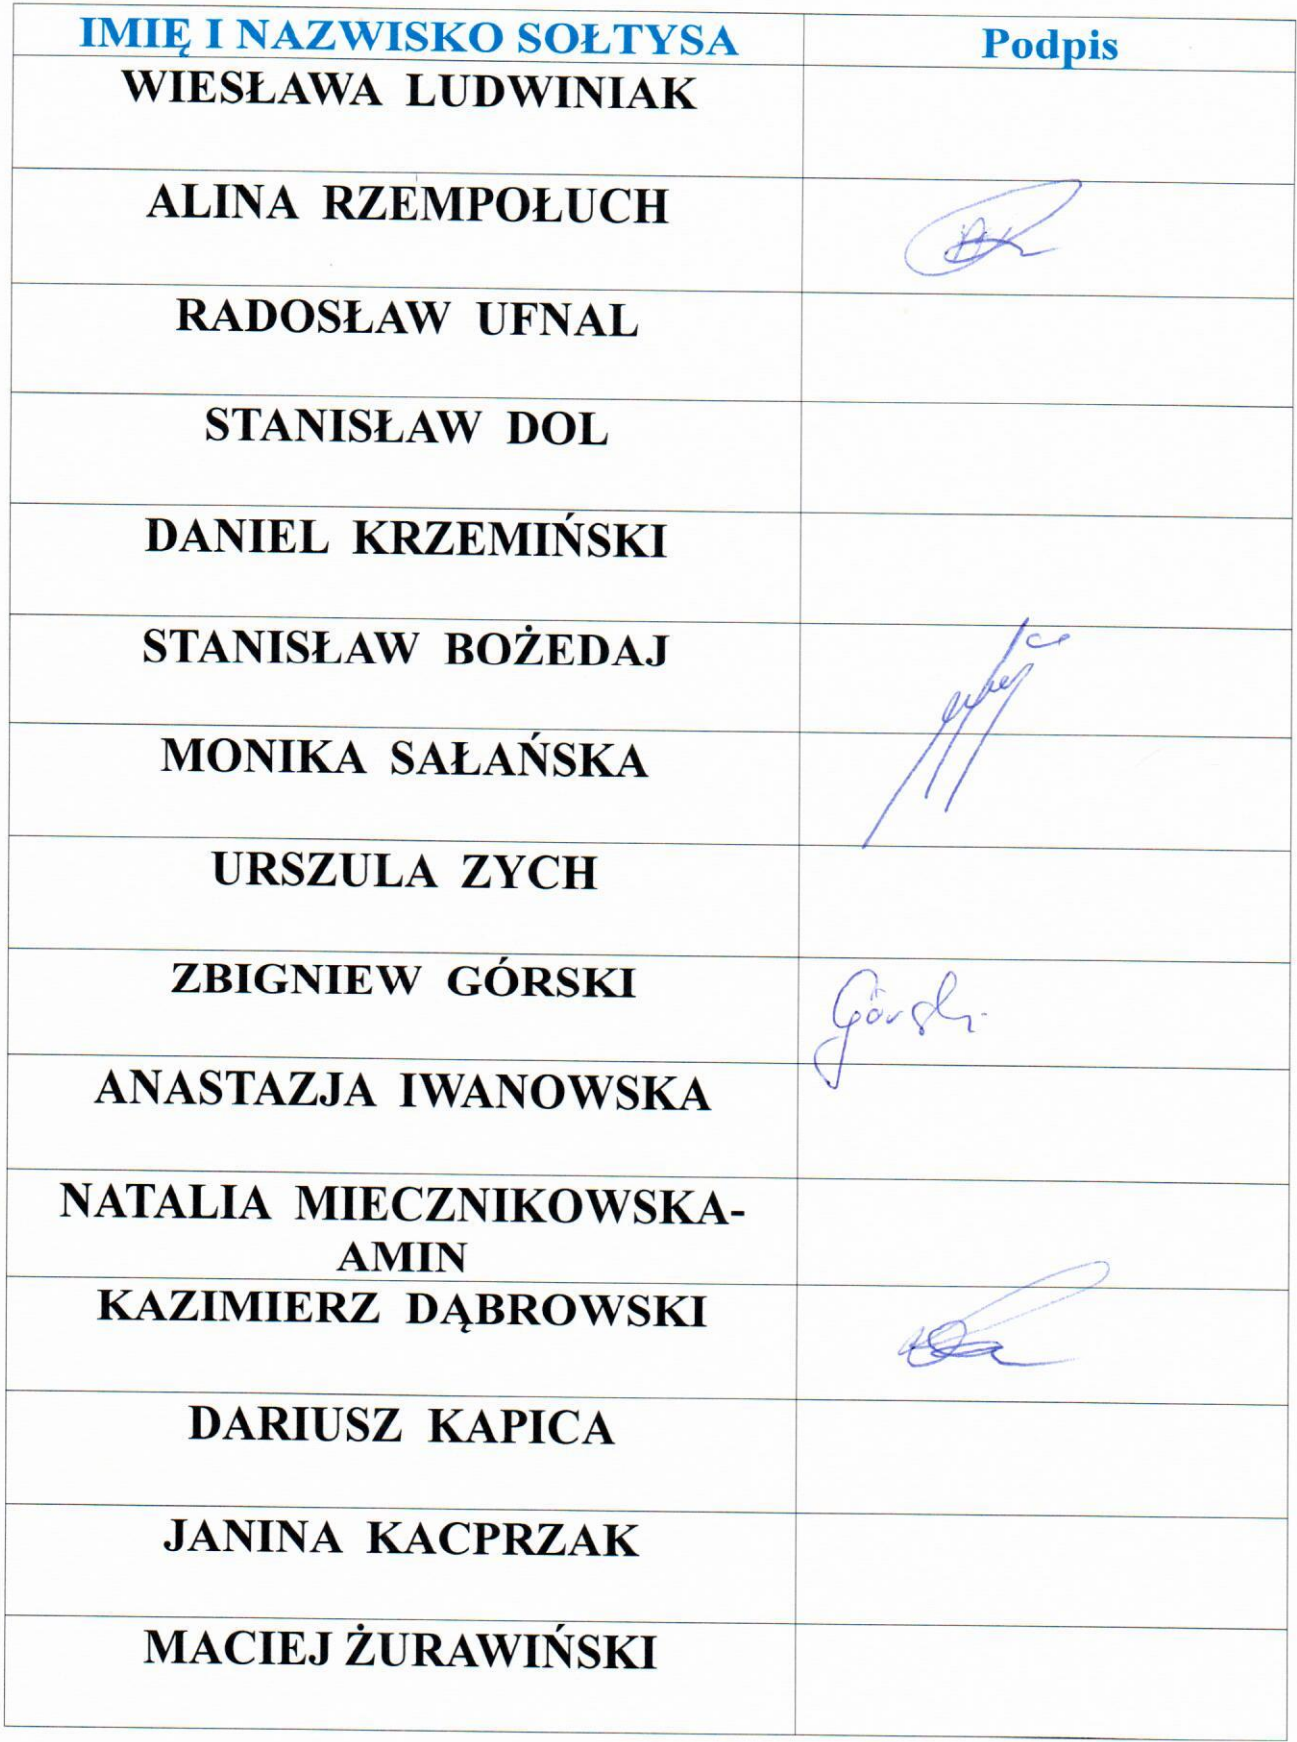 IMIĘ I NAZWISKO SOŁTYSA Podpis
WIESŁAWA LUDWINIAK
ALINA RZEMPOŁUCH
RADOSŁAW UFNAL
STANISŁAW DOL
DANIEL KRZEMIŃSKI
STANISŁAW BOŻEDAJ
MONIKA SAŁAŃSKA
URSZULA ZYCH
ZBIGNIEW GÓRSKI Górski
ANASTAZJA IWANOWSKA
NATALIA MIECZNIKOWSKA-
AMIN
KAZIMIERZ DĄBROWSKI
DARIUSZ KAPICA
JANINA KACPRZAK
MACIEJ ŻURAWIŃSKI